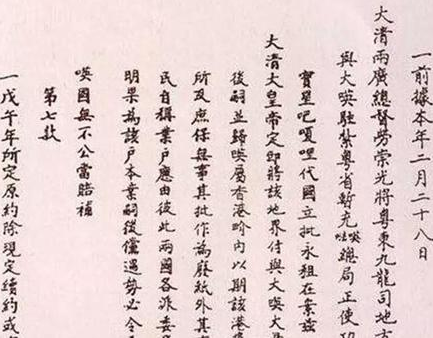 一前據本年二月二十八日
大清兩廣總督勞崇光將粵東九龍司地方
與大暎駐紮粵省暫充暎咈總局正使功
寶星吧嗄哩代國立批永租在案茲
大清大皇帝定即將該地界付與大暎大
後嗣並歸暎屬香港界內以期該港
所及庇保無事其批作為廢紙外其
民自稱業戶應由彼此兩國各派委
明果為該戶本業嗣後儻遇勢必令
暎國無不公當賠補
第七款
一戊午年所定原約除現定續約或